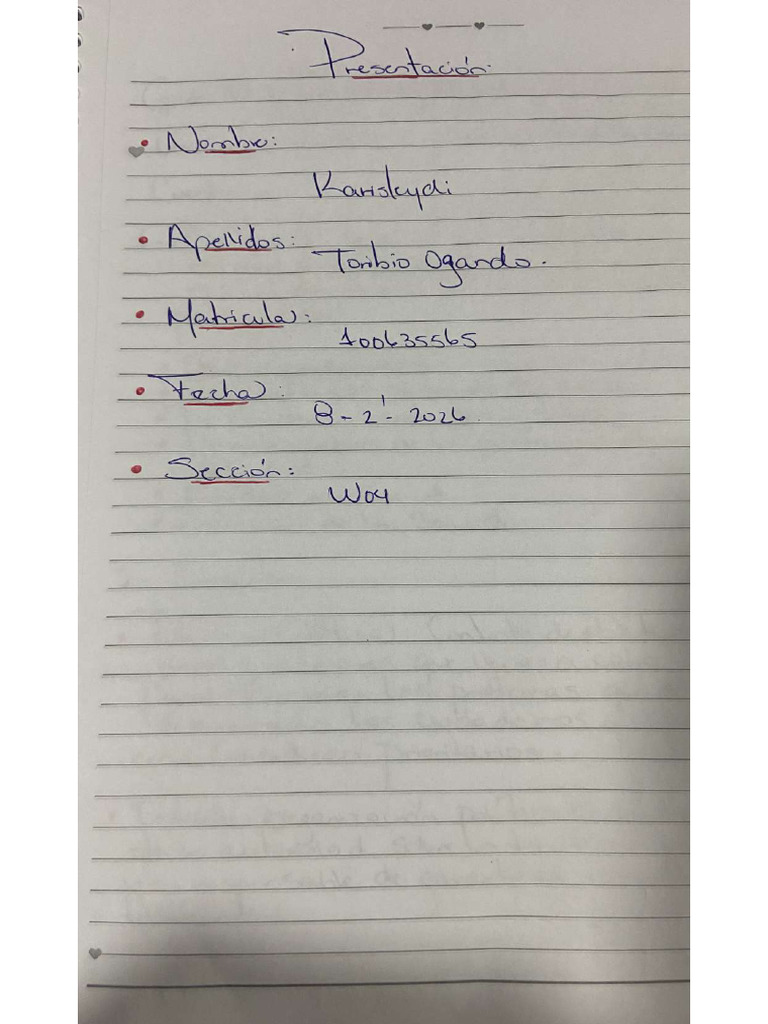 Presentación.
• Nombre:
Karisleydi
• Apellidos:
Toribio Ogando.
• Matricula:
100635565
• Fecha:
8-2-2026.
• Sección:
W04